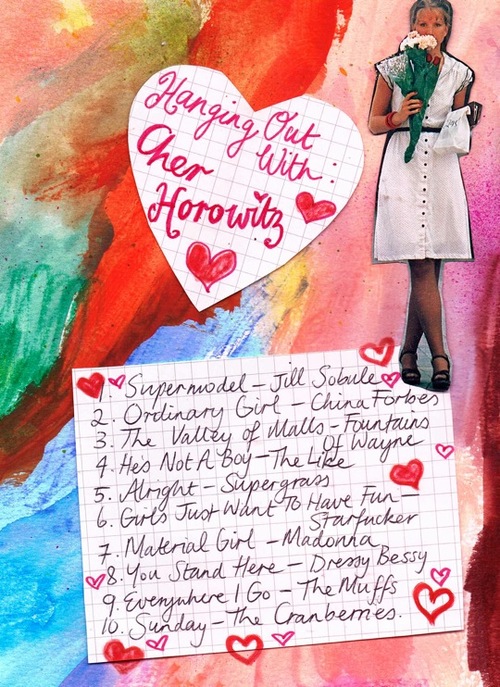 Hanging Out
With:
Cher
Horowitz
1. Supermodel – Jill Sobule
2. Ordinary Girl – China Forbes
3. The Valley of Malls – Fountains
Of Wayne
4. He's Not A Boy – The Like
5. Alright – Supergrass
6. Girls Just Want To Have Fun –
Starfucker
7. Material Girl – Madonna
8. You Stand Here – Dressy Bessy
9. Everywhere I Go – The Muffs
10. Sunday – The Cranberries.